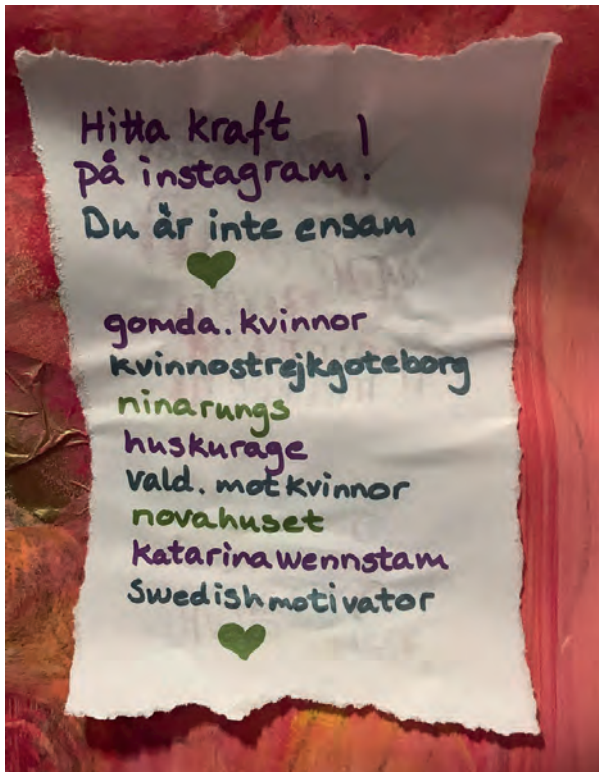 Hitta kraft
på instagram!
Du är inte ensam
gomda.kvinnor
kvinnostrejkgoteborg
ninarungs
huskurage
vald.motkvinnor
novahuset
katarinawennstam
Swedishmotivator